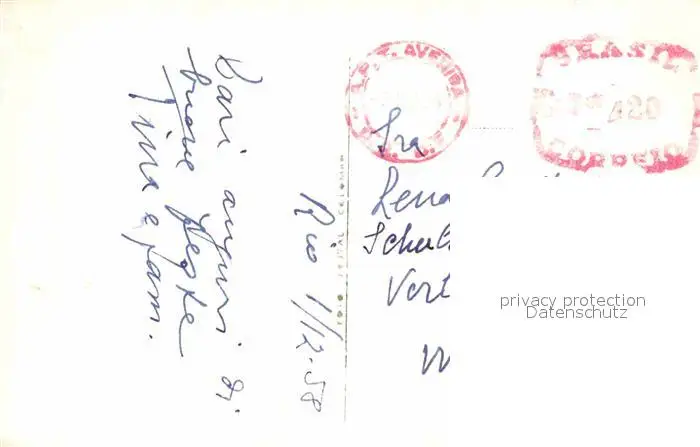 Cari auguri di
buone feste
Ina e fam.
Rio 1/12-58
AVENIDA
BRASIL
420
CORREIO
Sra
Lena
Schul
Vert
privacy protection
Datenschutz